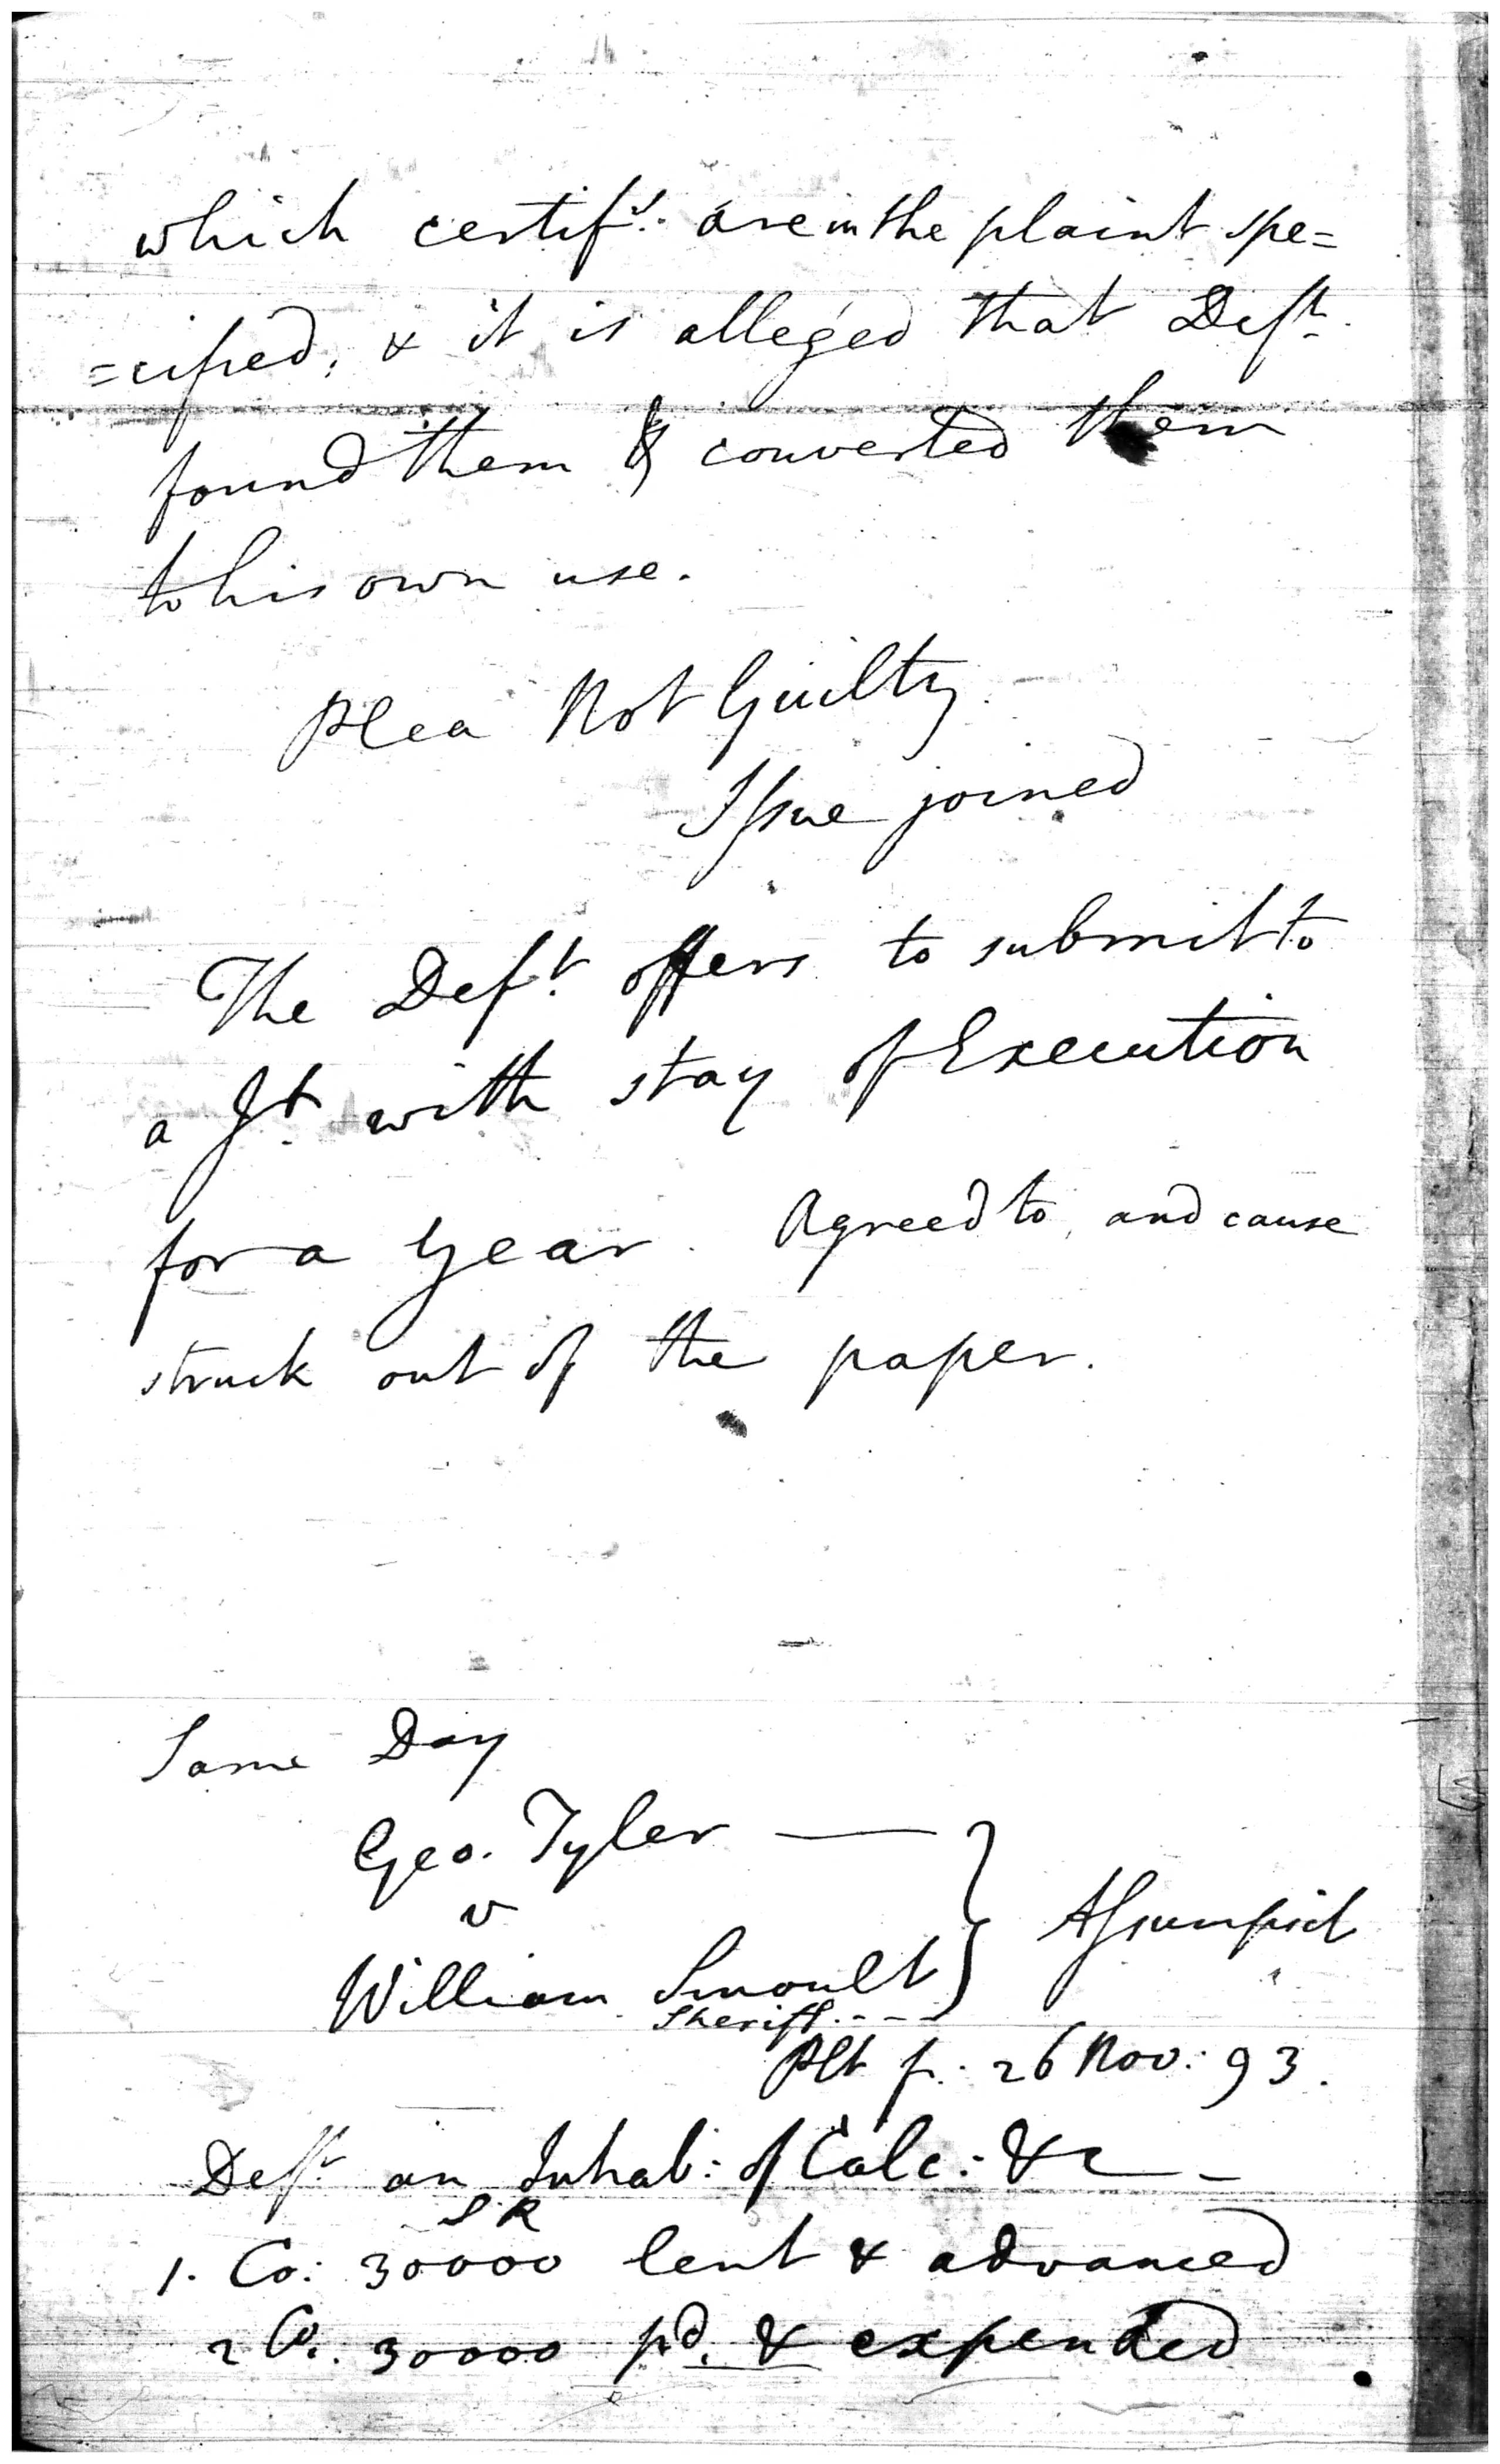 which certifs. are in the plaint spe=
=cified, & it is alleged that Deft.
found them & converted them
to his own use.
Plea Not Guilty
Issue joined
The Deft. offers to submit to
a Jt. with stay of Execution
for a Year. Agreed to, and cause
struck out of the paper.
Same Day
Geo. Tyler
v
William Smoult
Sheriff. - - -
Assumpsit
Plt f. 26 Nov: 93.
Deft. an Inhab: of Calc: &c
S R
1. Co: 30000 lent & advanced
2 Co. 30000 pd. & expended